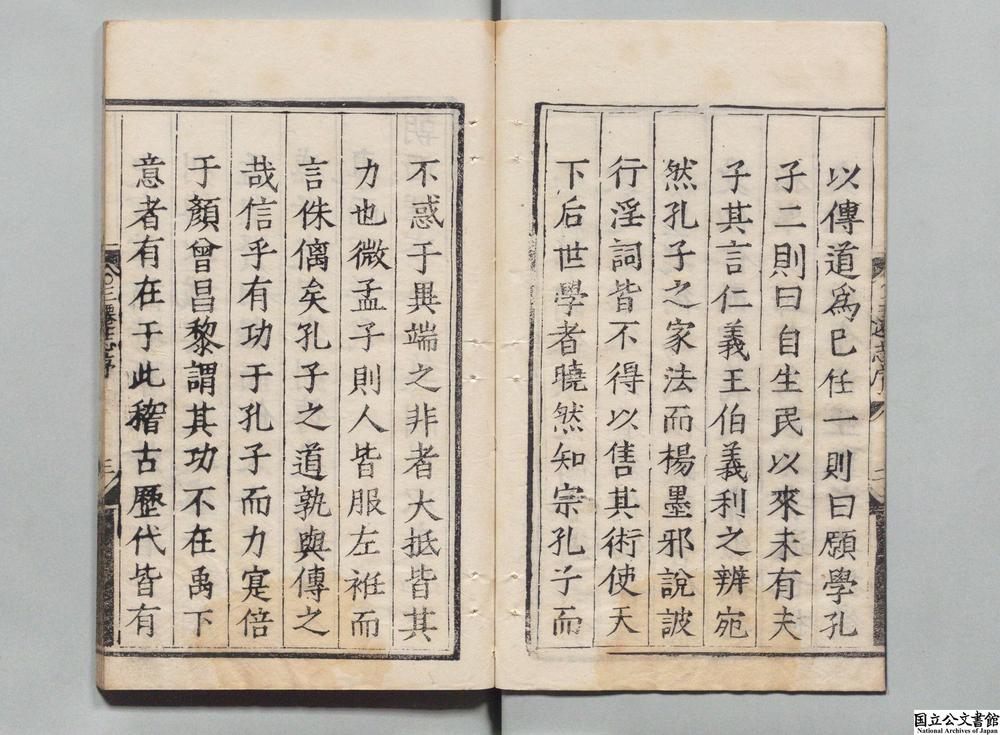 以傳道爲己任一則曰願學孔
子二則曰自生民以來未有夫
子其言仁義王伯義利之辨宛
然孔子之家法而楊墨邪說詖
行淫詞皆不得以售其術使天
下后世學者曉然知宗孔子而
不惑于異端之非者大抵皆其
力也微孟子則人皆服左袵而
言侏㒧矣孔子之道孰與傳之
哉信乎有功于孔子而力寔倍
于顏曾昌黎謂其功不在禹下
意者有在于此稽古歷代皆有
三遷志序
三
国立公文書館
National Archives of Japan